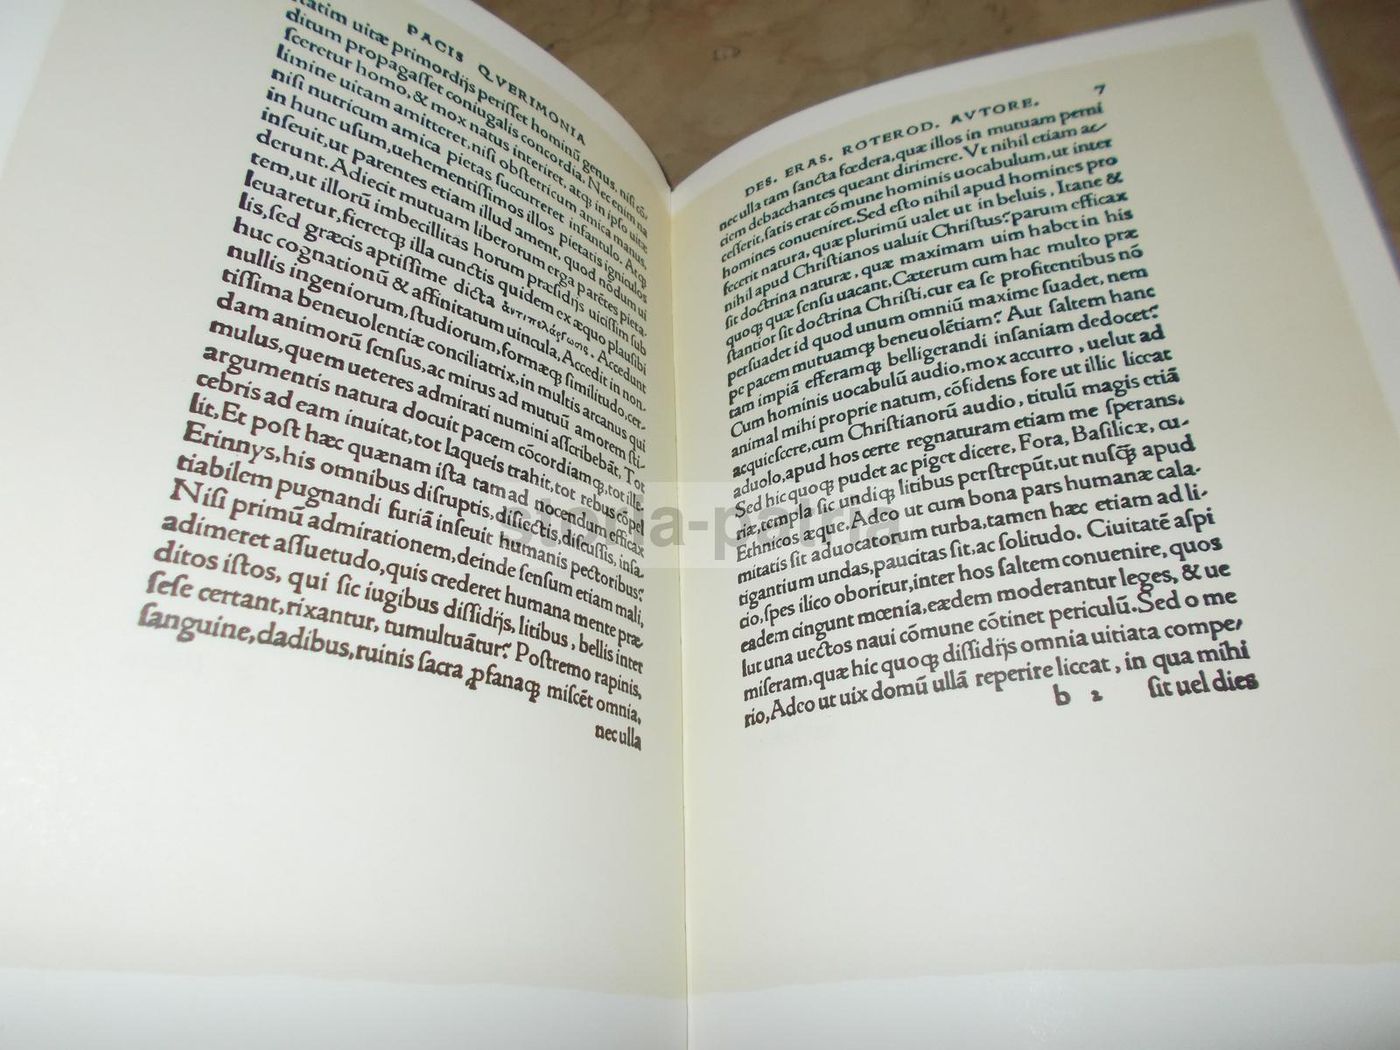 PACIS QVERIMONIA
statim uitæ primordijs perisset hominũ genus, nisi cõ-
ditum propagasset coniugalis concordia. Nec enim na
sceretur homo, & mox natus interiret, atq; in ipso uitæ
limine uitam amitteret, nisi obstetricum amica manus,
nisi nutricum amica pietas succurreret infantulo. Atq;
in hunc usum, uehementissimos illos pietatis igniculos
inseuit, ut parentes etiam illud ament, quod nõdum ui
derunt. Adiecit mutuam liberorum erga parẽtes pieta-
tem, ut illorũ imbecillitas horum præsidijs uicissim sub
leuaretur, fieretq; illa cunctis quidem ex æquo plausibi
lis, sed græcis aptissime dicta ἀντιπελάργωσις. Accedunt
huc cognationũ & affinitatum uincula, Accedit in non-
nullis ingeniorum, studiorum, formæq; similitudo, cer-
tissima beneuolentiæ conciliatrix, in multis arcanus qui
dam animorũ sensus, ac mirus ad mutuũ amorem sti-
mulus, quem ueteres admirati numini asscribebãt. Tot
argumentis natura docuit pacem cõcordiamq;, tot ille
cebris ad eam inuitat, tot laqueis trahit, tot rebus cõpel
lit, Et post hæc quænam ista tam ad nocendum efficax
Erinnys, his omnibus disruptis, disiectis, discussis, insa-
tiabilem pugnandi furiã inseuit humanis pectoribus?
Nisi primũ admirationem, deinde sensum etiam mali,
adimeret assuetudo, quis crederet humana mente præ
ditos istos, qui sic iugibus dissidijs, litibus, bellis inter
sese certant, rixantur, tumultuãtur? Postremo rapinis,
sanguine, cladibus, ruinis sacra ꝓfanaq; miscẽt omnia,
nec ulla
DES. ERAS. ROTEROD. AVTORE. 7
nec ulla tam sancta fœdera, quæ illos in mutuam perni
ciem debacchantes queant dirimere. Vt nihil etiam ac-
cesserit, satis erat cõmune hominis uocabulum, ut inter
homines conueniret. Sed esto nihil apud homines pro
fecerit natura, quæ plurimũ ualet ut in beluis, Itane &
nihil apud Christianos ualuit Christus? parum efficax
sit doctrina naturæ, quæ maximam uim habet in his
quoq; quæ sensu uacant. Cæterum cum hac multo præ
stantior sit doctrina Christi, cur ea se profitentibus nõ
persuadet id quod unum omniũ maxime suadet, nem
pe pacem mutuamq; beneuolẽtiam? Aut saltem hanc
tam impiã efferamq; belligerandi insaniam dedocet?
Cum hominis uocabulũ audio, mox accurro, uelut ad
animal mihi proprie natum, cõfidens fore ut illic liceat
acquiescere, cum Christianorũ audio, titulũ magis etiã
aduolo, apud hos certe regnaturam etiam me sperans.
Sed hic quoq; pudet ac piget dicere, Fora, Basilicæ, cu-
riæ, templa sic undiq; litibus perstrepũt, ut nusq̃ apud
Ethnicos æque. Adeo ut cum bona pars humanæ cala-
mitatis sit aduocatorum turba, tamen hæc etiam ad li-
tigantium undas, paucitas sit, ac solitudo. Ciuitatẽ aspi
cio, spes ilico oboritur, inter hos saltem conuenire, quos
eadem cingunt mœnia, eædem moderantur leges, & ue
lut una uectos naui cõmune cõtinet periculũ. Sed o me
miseram, quæ hic quoq; dissidijs omnia uitiata compe-
rio, Adeo ut uix domũ ullã reperire liceat, in qua mihi
b 2 sit uel dies
storia-patria